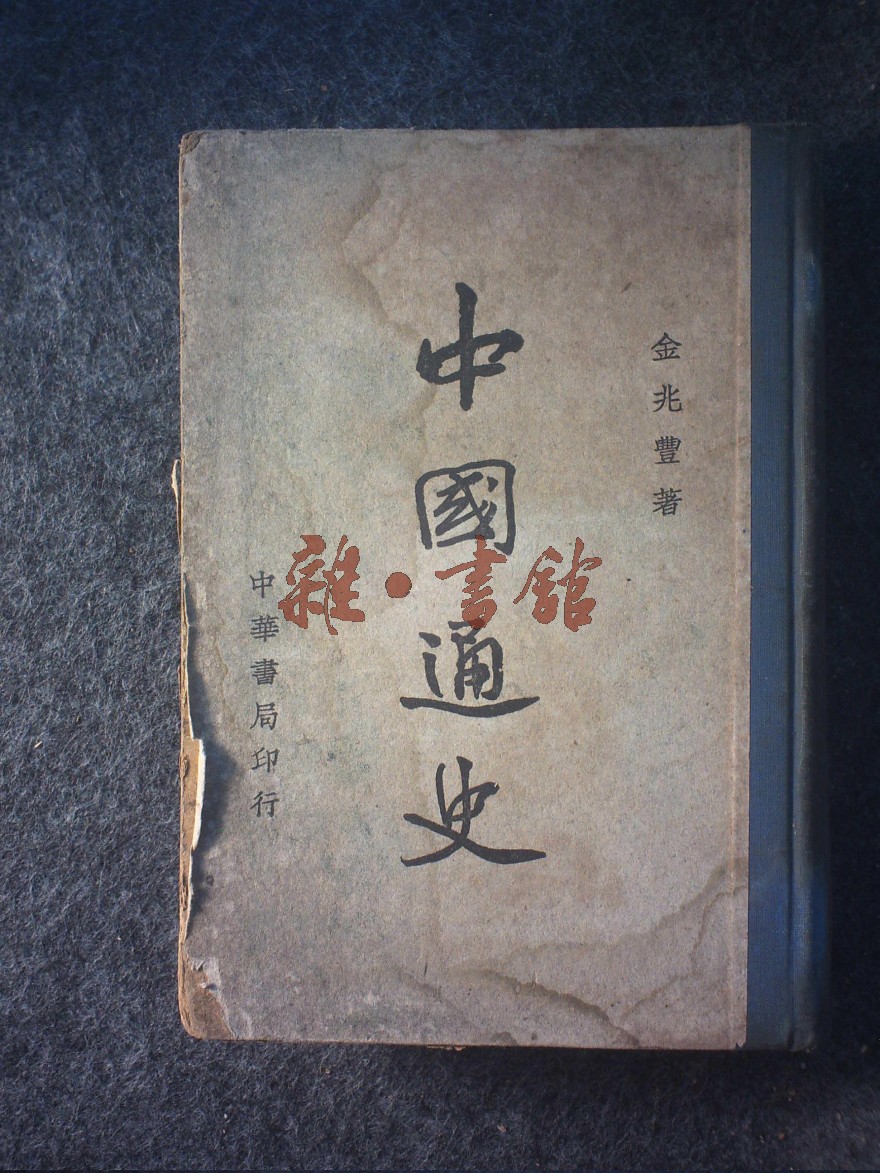 金兆豐著
中國通史
中華書局印行
雜·書舘